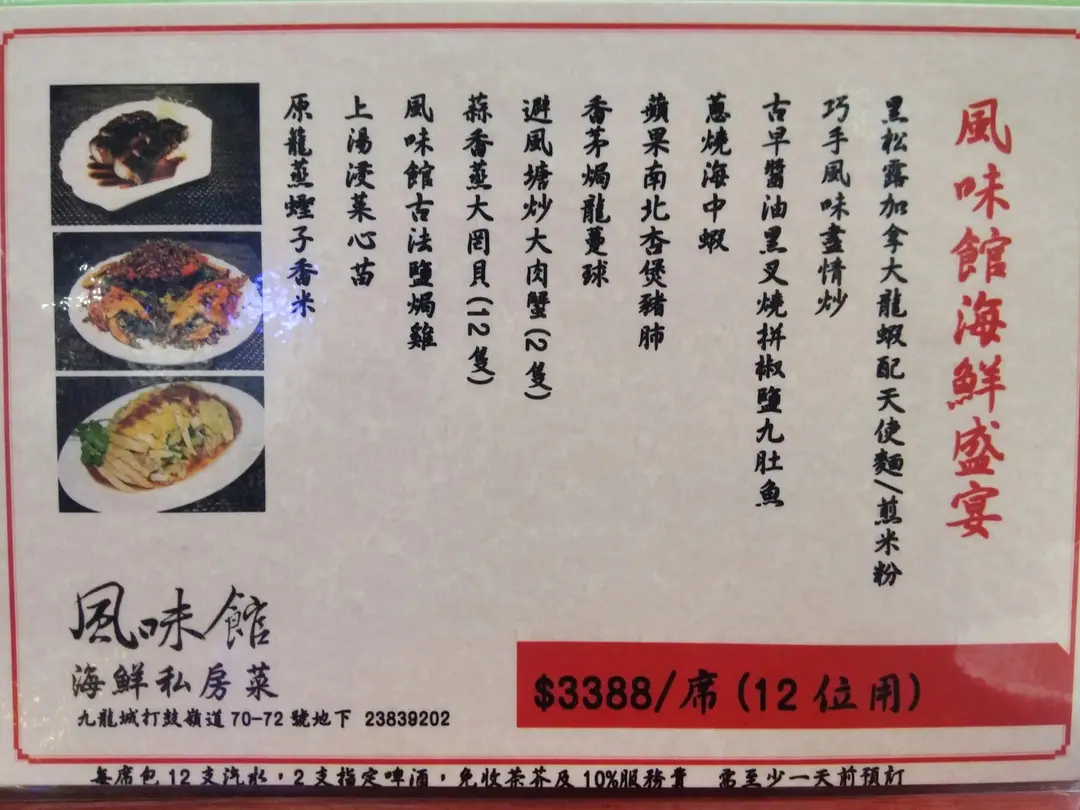 風味館海鮮盛宴
黑松露加拿大龍蝦配天使麵/煎米粉
巧手風味盡情炒
古早醬油黑叉燒拼椒鹽九肚魚
蔥燒海中蝦
蘋果南北杏煲豬肺
香茅焗龍躉球
避風塘炒大肉蟹(2隻)
蒜香蒸大閂貝(12隻)
風味館古法鹽焗雞
上湯浸菜心苗
原龍蒸蟶子香米
$3388/席(12位用)
風味館
海鮮私房菜
九龍城打鼓嶺道70-72號地下 23839202
每席包12支汽水，2支指定啤酒，免收茶芥及10%服務費 需至少一天前預訂